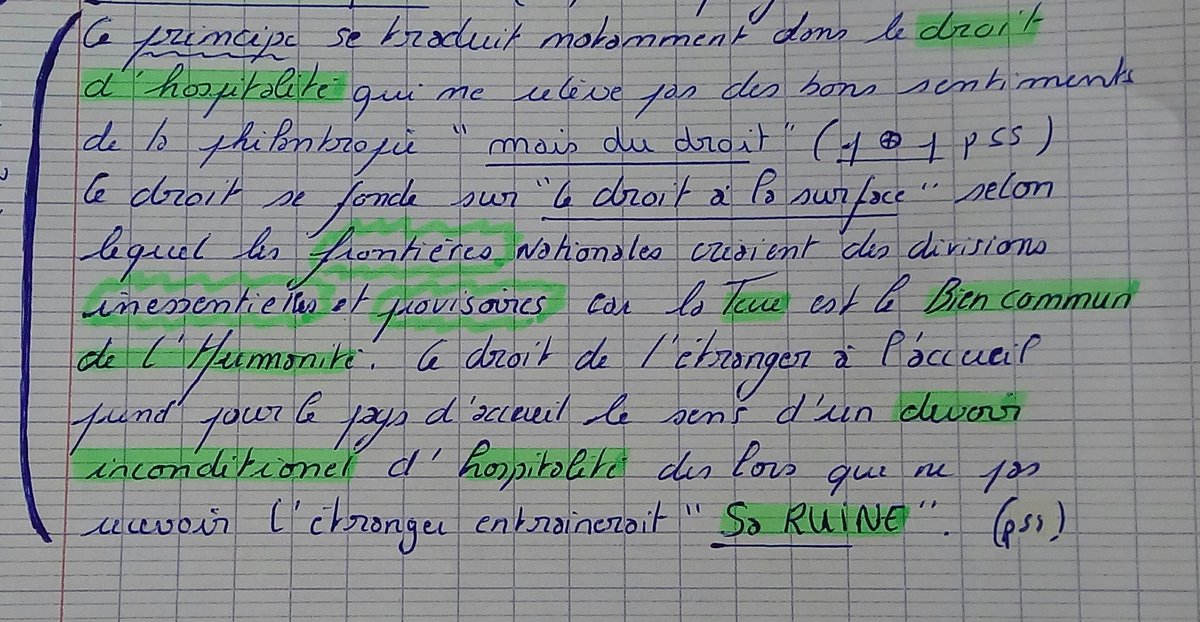 Ce principe se traduit notamment dans le droit
d'hospitalité qui ne relève pas des bons sentiments
de la philanthropie "mais du droit" (
Ce droit se fonde sur "le droit à la surface" selon
lequel les frontières Nationales créaient des divisions
inessentielles et provisoires car la Terre est le Bien commun
de l'Humanité. Ce droit de l'étranger à l'accueil
prend pour le pays d'accueil le sens d'un devoir
inconditionel d'hospitalité des lors que ne pas
recevoir l'étranger entrainerait "Sa RUINE". (pss)